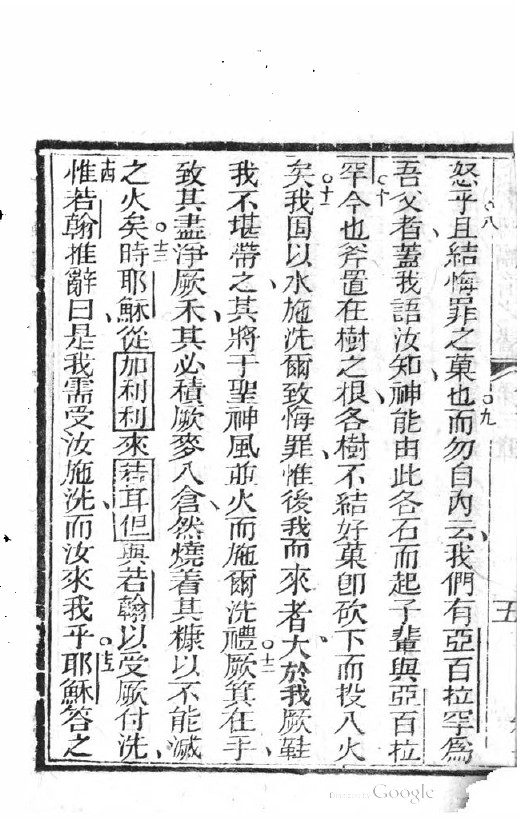 怒乎且結悔罪之菓也而勿自內云我們有亞百拉罕為
吾父者蓋我語汝知神能由此各石而起子輩與亞百拉
罕今也斧置在樹之根各樹不結好菓卽砍下而投入火
矣我固以水施洗爾致悔罪惟後我而來者大於我厥鞋
我不堪帶之其將于聖神風並火而施爾洗禮厥箕在手
致其盡淨厥禾其必積厥麥入倉然燒着其糠以不能滅
之火矣時耶穌從加利利來若耳但與若翰以受厥付洗
惟若翰推辭曰是我需受汝施洗而汝來我乎耶穌答之
八
九
十
十一
十二
十三
十四
十五
五
Google